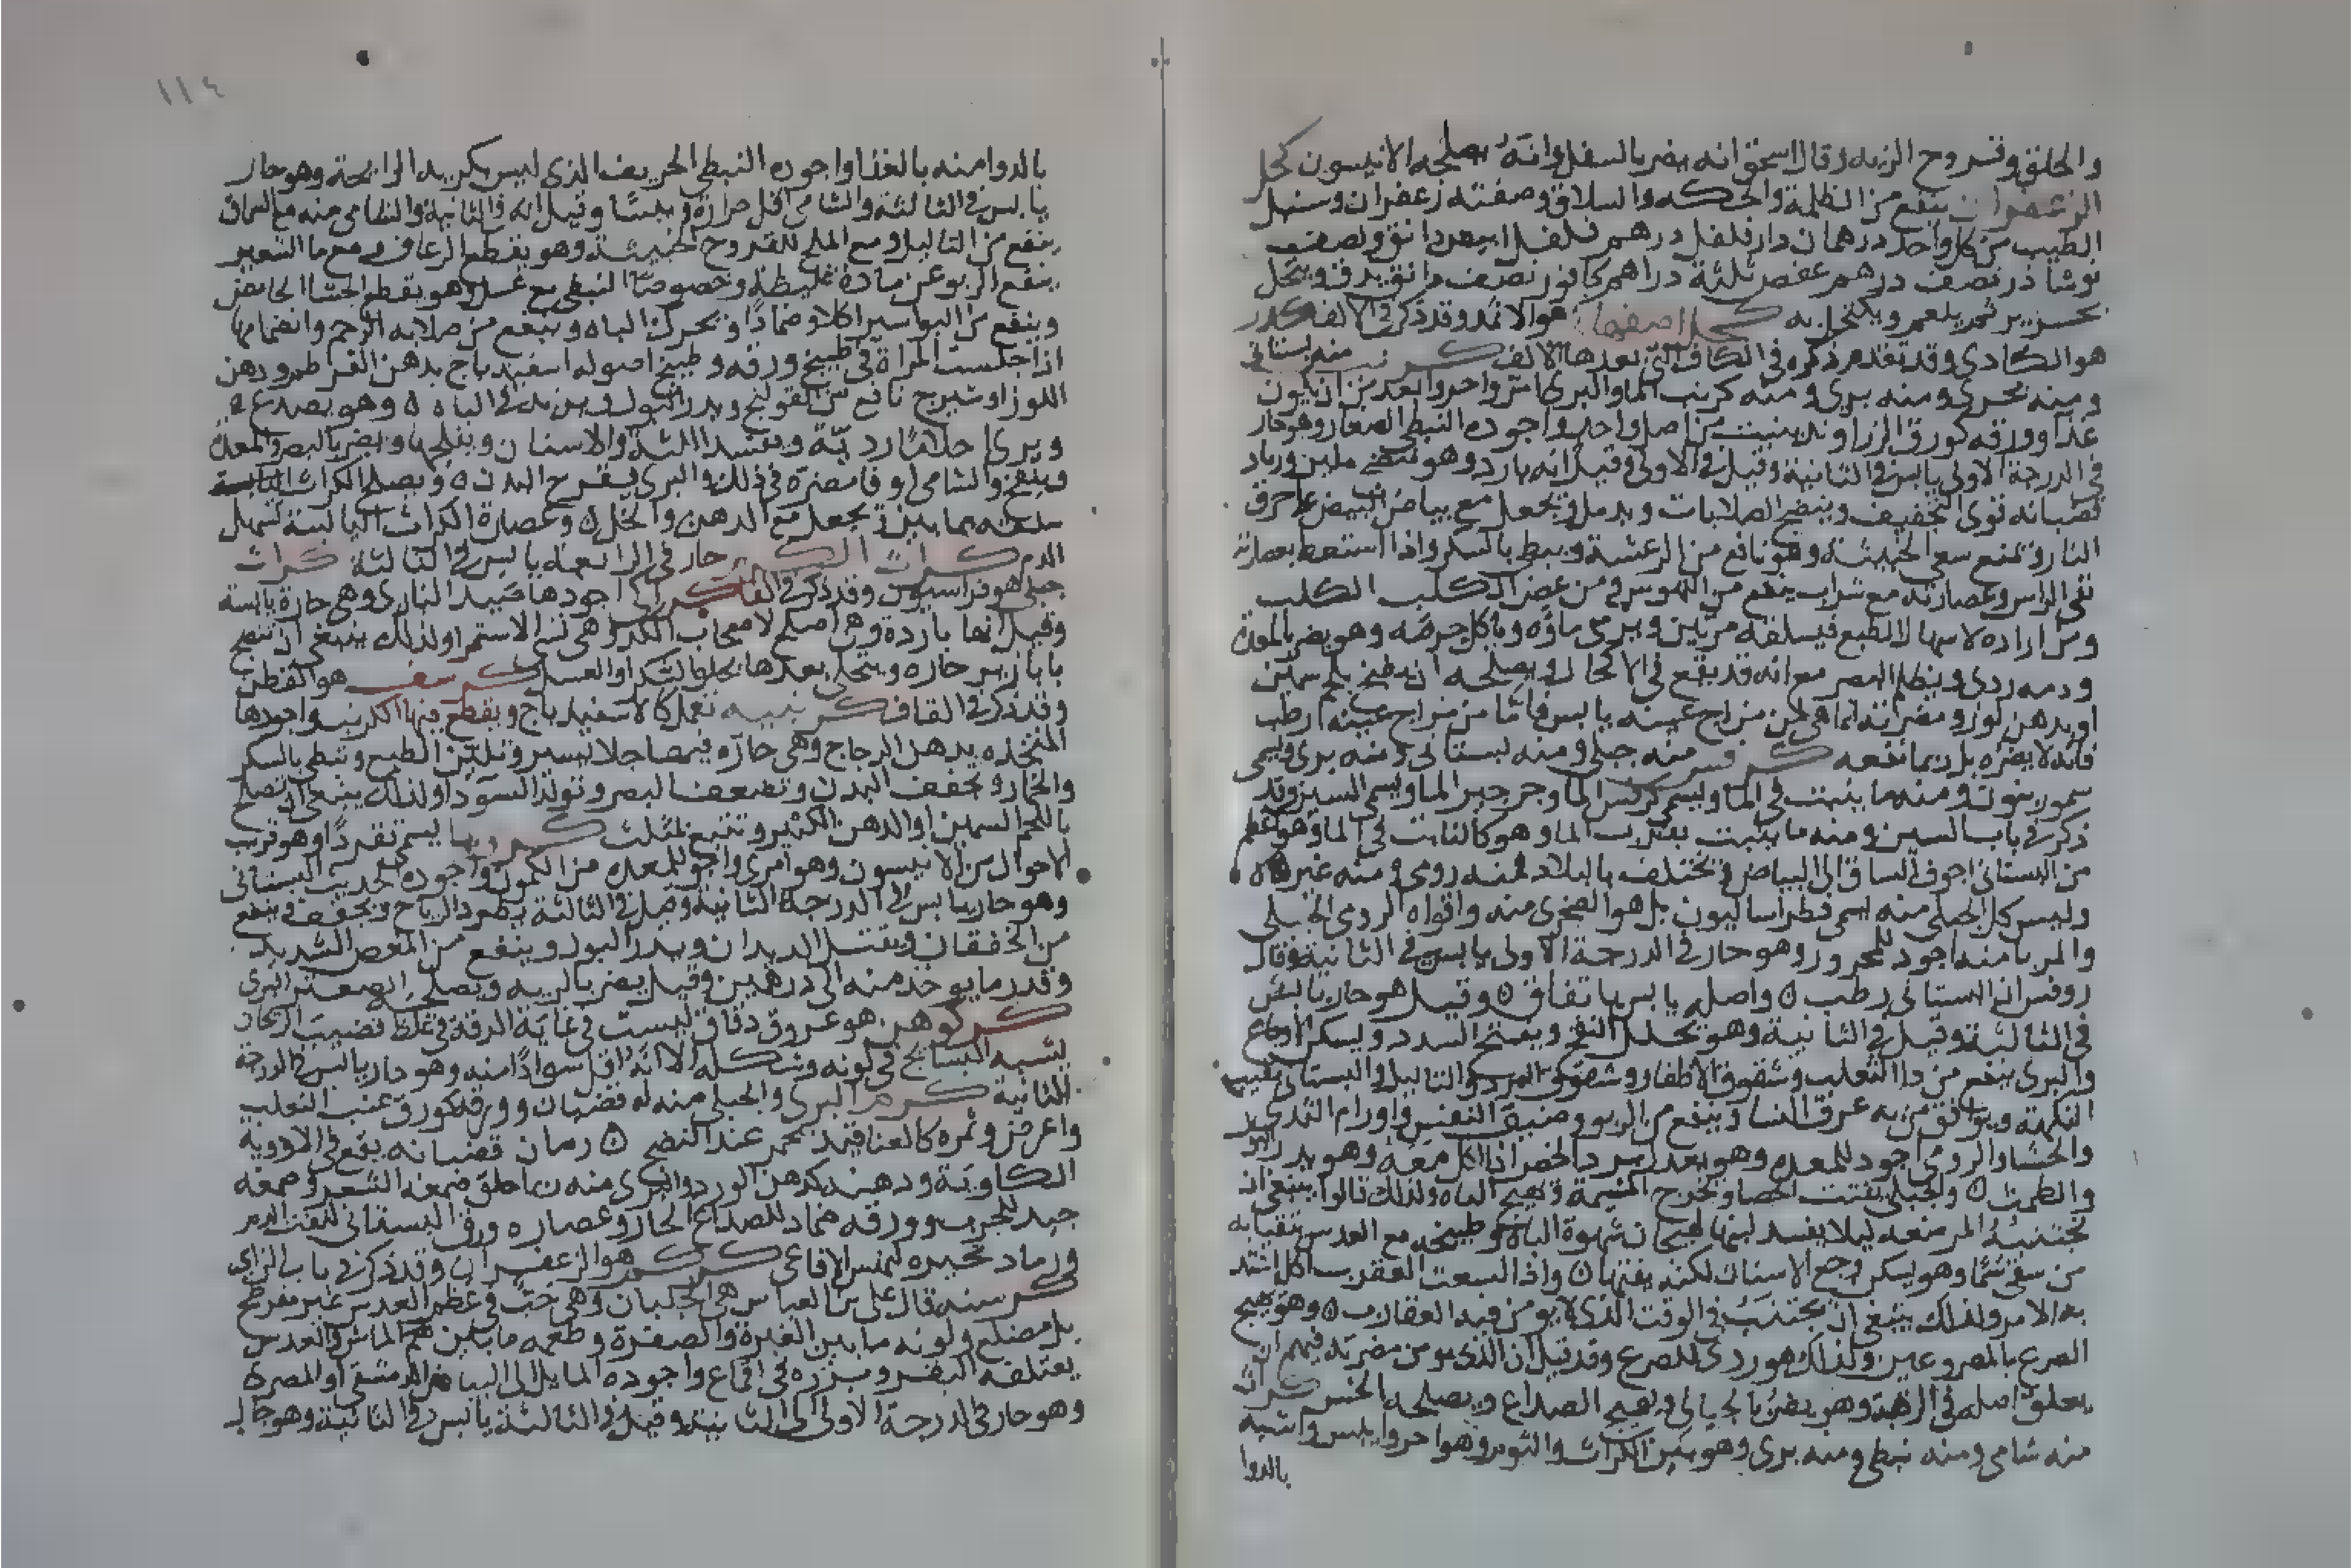 والحلق وقروح الرئه وقال اسحق انه يضر بالسفل وانه يصلحه الانيسون كحل
الزعفران ينفع من الظلمة والحكه والسلاق وصفته زعفران وسنبل
الطيب من كل واحد درهمان دار فلفل درهم فلفل ابيض دانق ونصف
نوشاذر نصف درهم عفص ثلثة دراهم كافور نصف دانق يدق وينخل
بحرير ثم ويكتحل به كحل اصفهان هو الاثمد وقد ذكر في الالف كدر
هو الكادي وقد تقدم ذكره في الكاف التي بعدها الالف كرنب منه بستاني
ومنه بحري ومنه بري ومنه كرنب الماء والبري امر واحد وابعد من ان يكون
غذا وورقه كورق الزراوند ينبت من اصل واحد واجوده النبطي الصغار وهو حار
في الدرجة الاولى يابس في الثانية وقيل في الاولى وقيل انه بارد وهو منضج ملين ورماد
قضبانه قوى التجفيف وينضج الصلابات ويدمل ويجعل مع بياض البيض على حرق
النار ويمنع سعي الخبيثة وهو نافع من الرعشة ويبطي بالسكر واذا استعط بعصارته
نقى الراس وعصارته مع شراب ينفع من النهوس ومن عض الكلب الكلب
ومن اراد به اسهال الطبع فيسلقه مرتين ويرمى ماؤه وياكل جرمه وهو يضر بالمعدة
ودمه ردي ويظلم البصر مع انه قد يقع في الاكحال ويصلحه ان يطبخ بلحم سمين
او بدهن لوز ومضرته انما هي لمن مزاج عينه يابس فاما من مزاج عينه ارطب
فانه لا يضره بل ربما نفعه كرفس منه جبلي ومنه بستاني ومنه بري ويسمى
سمورنيون ومنه ما ينبت في الماء ويسمى كرفس الماء وجرجير الماء ويسمى السير وقد
ذكر في باب السين ومنه ما ينبت بقرب الماء وهو كالنابت في الماء وهو اعظم
من البستاني اجوف الساق الى البياض وتختلف بالبلاد فمنه رومي ومنه غيره
وليس كل الجبلي منه اسم فطراساليون بل هو الصخري منه واقواه الرومي الجبلي
والمربا منه اجود للمحرور وهو حار في الدرجة الاولى يابس في الثانية وقال
روفس ان البستاني رطب واصله يابس باتفاق وقيل هو حار يابس
في الثالثة وقيل في الثانية وهو يحلل النفخ ويفتح السدد ويسكن الاوجاع
والبري ينفع من داء الثعلب وشقوق الاظفار وشقوق البرد والثاليل والبستاني يطيب
النكهة ويوافق من به عرق النسا وينفع من الربو وضيق النفس واورام الثدي
والحشا والرومي اجود للمعده وهو بعد الخس اذا اكل معه وهو يدر البول
والطمث والجبلي يفتت الحصا ويخرج المشيمة ويهيج الباه ولذلك قالوا ينبغي ان
تجتنبه المرضعه ليلا يفسد لبنها لهيجان شهوة الباه وطبيخه مع العدس يتقيا به
من سقي سما وهو يسكن وجع الاسنان لكنه يفتتها واذا لسعت العقرب اكله اشتد
به الامر ولذلك ينبغي ان يجتنب في الوقت الذي لا يومن فيه العقارب وهو يهيج
الصرع بالمصروعين ولذلك هو ردي للصرع وقد قيل ان الذي يومن مضرته فيهم ان
يعلق اصله في الرقبة وهو يضر بالحبالى ويهيج الصداع ويصلحه الخس كراث
منه شامي ومنه نبطي ومنه بري وهو بين الكراث والثوم وهو احر وايبس واشبه
بالدوا
١١٤
بالدوا منه بالغذا واجوده النبطي الحريف الذي ليس بكريه الرايحة وهو حار
يابس في الثالثة والشامي اقل حرارة ويبسا وقيل انه في الثانية والشامي منه مع السماق
ينفع من الثاليل ومع الملح للقروح الخبيثة وهو يقطع الرعاف ومع ما الشعير
ينفع الربو عن مادة غليظة وخصوصا النبطي مع عسل وهو يقطع الجشا الحامض
وينفع من البواسير اكلا وضمادا ويحرك الباه وينفع من صلابه الرحم وانضمامها
اذا جلست المراة في طبيخ ورقه وطبيخ اصوله اسفيدباج بدهن القرطم ودهن
اللوز او شيرج نافع من القولنج ويدر البول ويزيد في الباه وهو يصدع
ويرى احلاما رديّة ويفسد اللثة والاسنان ويثلمها ويضر بالبصر والمعدة
وينفخ والشامي اوفا مضرة في ذلك والبري يقرح البدن ويصلح الكراث
سلقه بماين ثم يجعل مع الدهن والخل وعصارة الكراث اليابسة تسهل
الدم كراث الكرم حار في الرابعه يابس في الثالثة كراث
جبلي هو فراسيون وقد ذكر في الفا اجودها صيد البازي وهي حارة يابسة
وقيل انها باردة وهي اصلح لاصحاب الكد وهي عسرة الاستمرا ولذلك ينبغي ان تنضج
بابازير حاره ويتحلى بعدها بحلوا السكر او العسل كرسف هو القطن
وقد ذكر في القاف كرنبيه تعمل كالاسفيدباج ويقطع فيها الكرنب واجودها
المتخذه بدهن الدجاج وهي حاره فيها جلا يسير وتلين الطبع وتبطي بالسكر
والخمار وتجفف البدن وتضعف البصر وتولد السودا ولذلك ينبغي ان تصلح
باللحم السمين او الدهن الكثير وتتبع بمثلث كرويا يسمى تقردا وهو قريب
الاحوال من الانيسون وهو امرى واجود للمعده من الكمون واجوده الحديث البستاني
وهو حار يابس في الدرجة الثانية وقيل في الثالثة يطرد الرياح ويجفف وينفع
من الخفقان ويقتل الديدان ويدر البول وينفع من المغص الشديد
وقدر ما يوخذ منه الى درهمين وقيل يضر بالريه ويصلحه الصعتر البري
كركوهن هو عروق دقاق ليست في غاية الدقة في غلظ قضيب الريحان
يشبه البسبايج في لونه وشكله الا انه اقل سوادا منه وهو حار يابس في الدرجة
الثانية كرم البري والجبلي منه له قضبان وورقه كورق عنب الثعلب
واعرض وثمره كالعناقيد يحمر عند النضج رماد قضبانه يقع في الادوية
الكاوية ودهنه كدهن الورد والبري منه حلق صمغه الشعر وصمغه
جيد للجرب وورقه ضماد للصداع الحار وعصاره ورق البستاني لنفث الدم
ورماد ثجيره لنهش الافاعي كركم هو الزعفران وقد ذكر في باب الزاي
كرسنه قال علي بن العباس هي الجلبان وهي حب في عظم العدس غير مفرطح
بل مضلع ولونه ما بين الغبرة والصفرة وطعمه ما بين طعم الماش والعدس
يعتلفه البقر وبزره في اقماع واجوده المايل الى البياض الدمشقي او المصري
وهو حار في الدرجة الاولى الى الثانية وقيل في الثالثة يابس في الثانية وهو جال